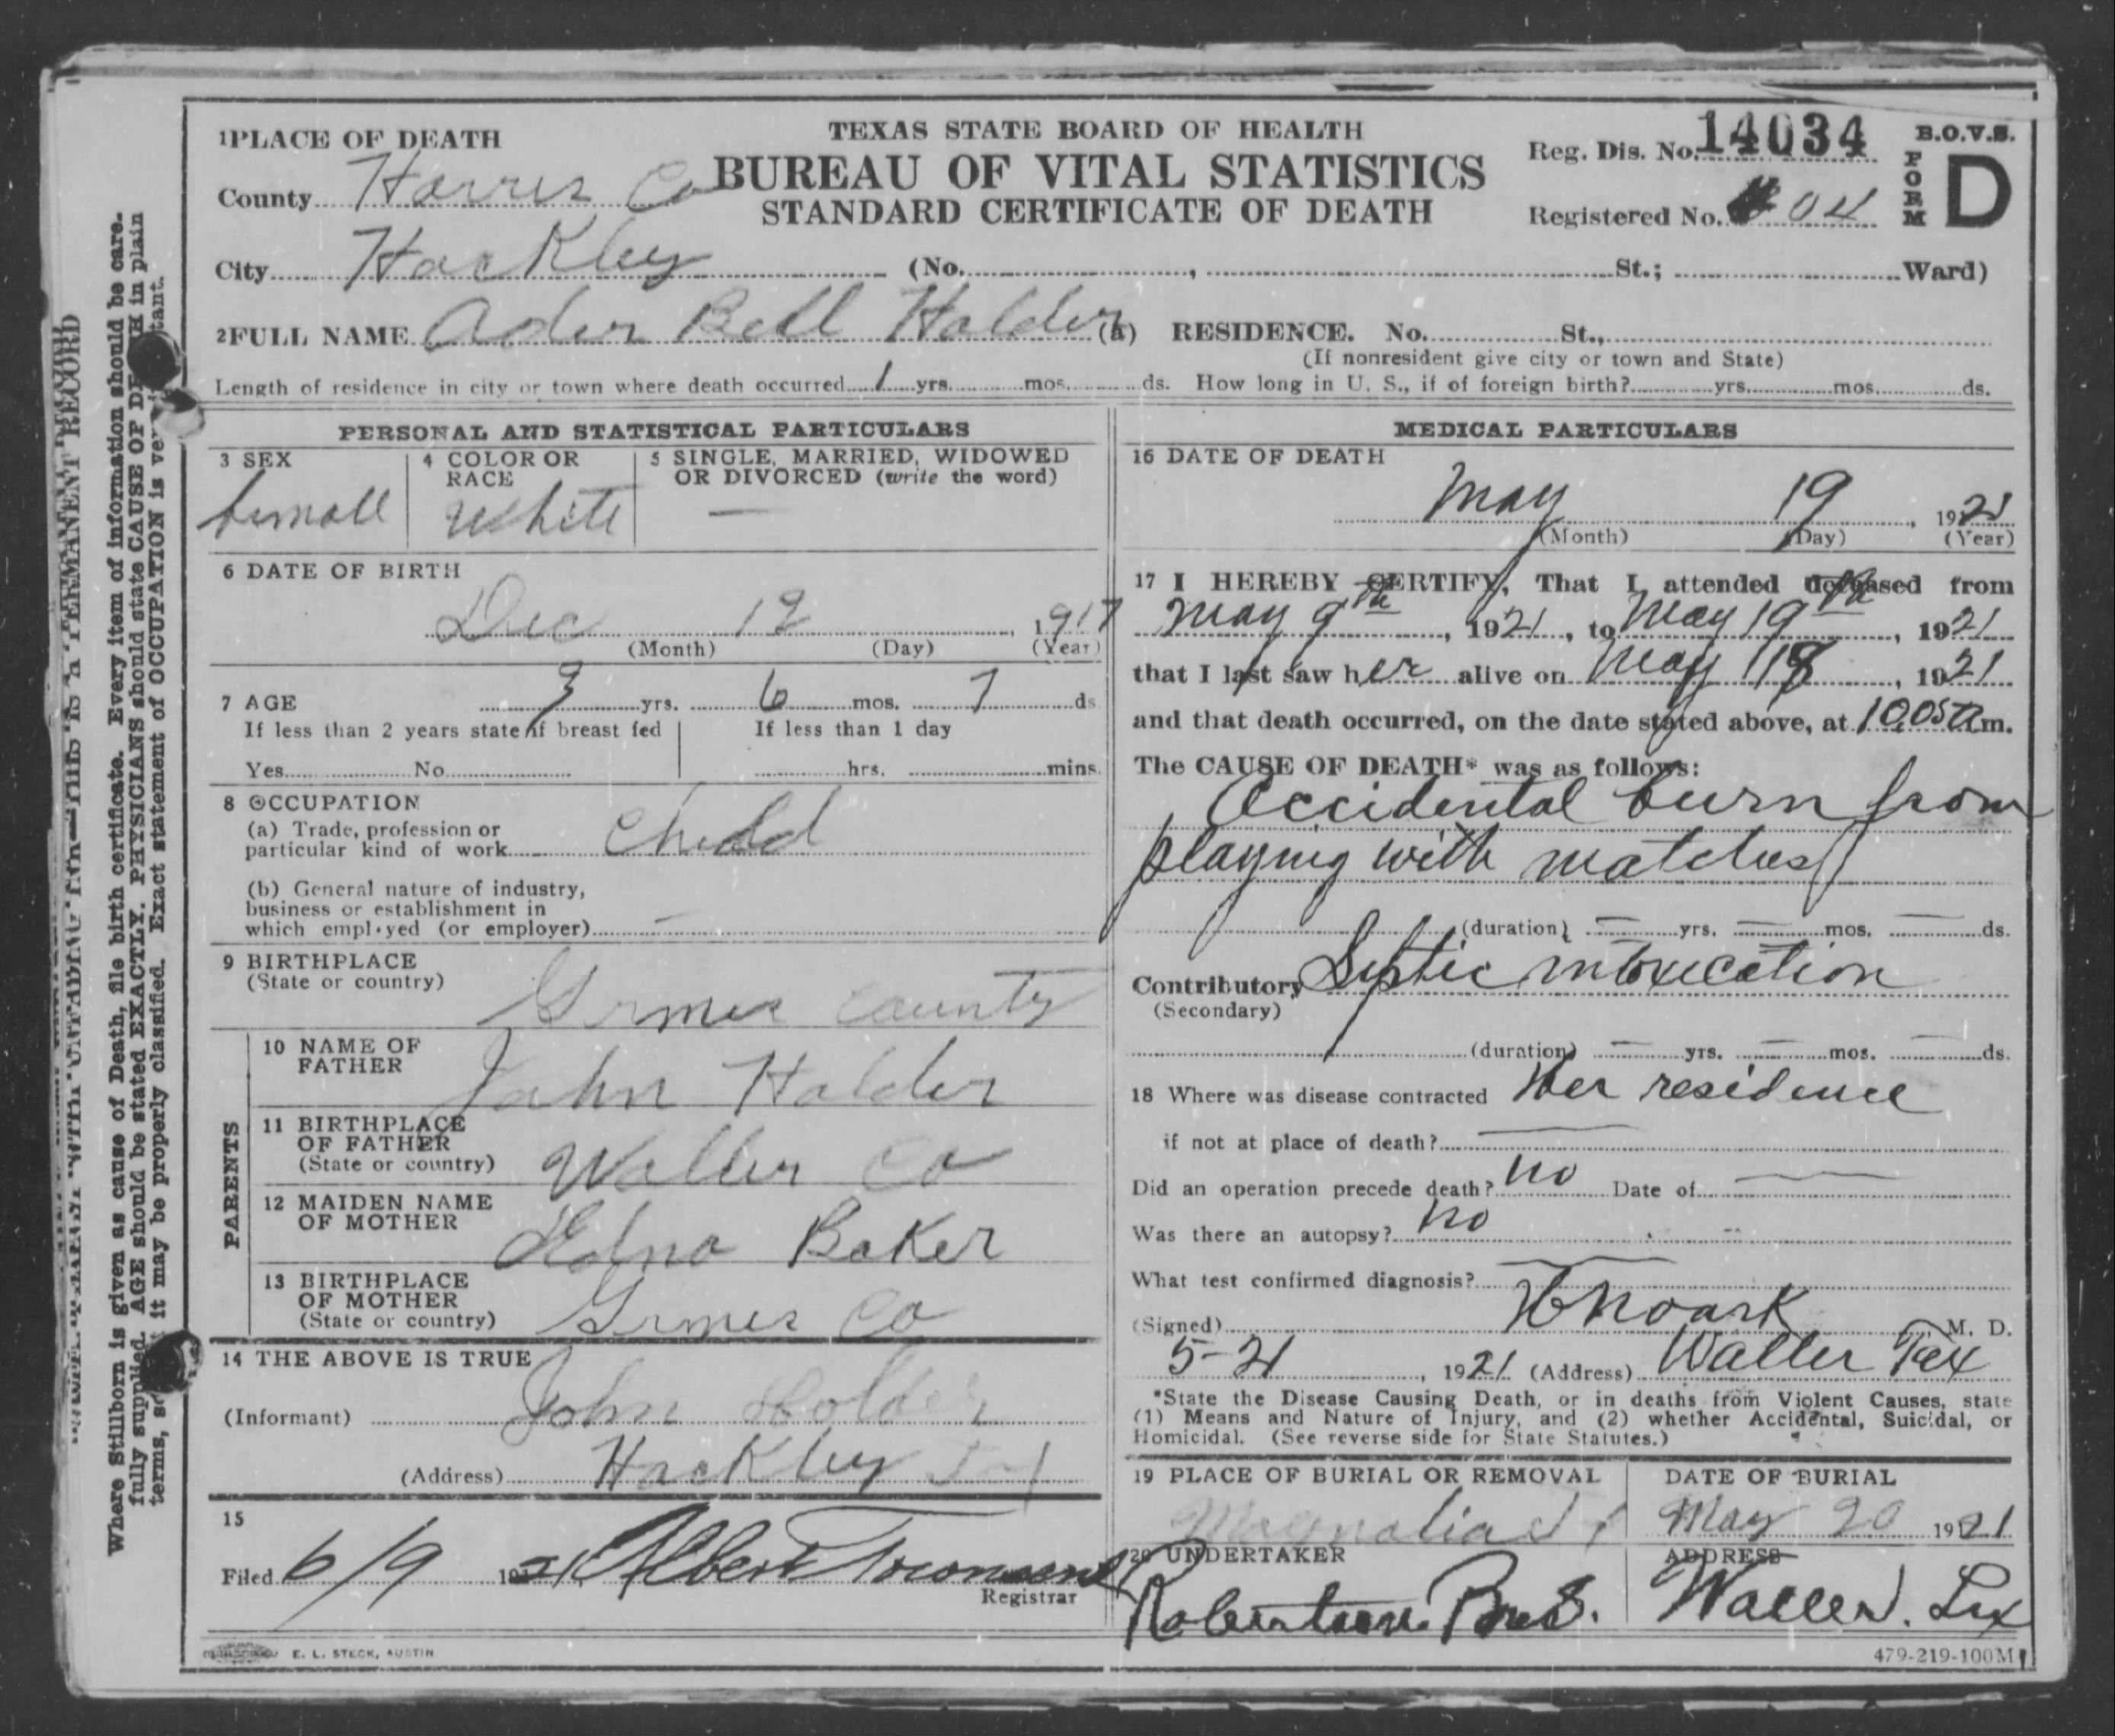 TEXAS STATE BOARD OF HEALTH
BUREAU OF VITAL STATISTICS
STANDARD CERTIFICATE OF DEATH
Reg. Dis. No. 14034
Registered No. 04
B.O.V.S.
FORM D
1 PLACE OF DEATH
County Harris Co
City Hockley (No. , St.; Ward)
2 FULL NAME Ader Bell Holder (a) RESIDENCE. No. St.,
(If nonresident give city or town and State)
Length of residence in city or town where death occurred 1 yrs. mos. ds. How long in U. S., if of foreign birth? yrs. mos. ds.
PERSONAL AND STATISTICAL PARTICULARS
3 SEX
femall
4 COLOR OR RACE
White
5 SINGLE, MARRIED, WIDOWED
OR DIVORCED (write the word)
—
6 DATE OF BIRTH
Dec 12, 1917
(Month) (Day) (Year)
7 AGE 3 yrs. 6 mos. 7 ds
If less than 2 years state if breast fed
Yes No
If less than 1 day
hrs. mins.
8 OCCUPATION
(a) Trade, profession or
particular kind of work Child
(b) General nature of industry,
business or establishment in
which employed (or employer) —
9 BIRTHPLACE
(State or country) Grimes County
PARENTS
10 NAME OF
FATHER John Holder
11 BIRTHPLACE
OF FATHER
(State or country) Waller Co
12 MAIDEN NAME
OF MOTHER Edna Baker
13 BIRTHPLACE
OF MOTHER
(State or country) Grimes Co
14 THE ABOVE IS TRUE
(Informant) John Holder
(Address) Hockley
15
Filed 6/9 1921, Albert Townsend
Registrar
MEDICAL PARTICULARS
16 DATE OF DEATH
May 19, 1921
(Month) (Day) (Year)
17 I HEREBY CERTIFY, That I attended deceased from
May 9th, 1921, to May 19th, 1921
that I last saw her alive on May 18, 1921
and that death occurred, on the date stated above, at 10.05 a m.
The CAUSE OF DEATH* was as follows:
Accidental burn from
playing with matches
(duration) — yrs. — mos. — ds.
Contributory Septic intoxication
(Secondary)
(duration) — yrs. — mos. — ds.
18 Where was disease contracted Her residence
if not at place of death? —
Did an operation precede death? no Date of —
Was there an autopsy? no
What test confirmed diagnosis? —
(Signed) M. D.
5-21, 1921 (Address) Waller Tex
*State the Disease Causing Death, or in deaths from Violent Causes, state
(1) Means and Nature of Injury, and (2) whether Accidental, Suicidal, or
Homicidal. (See reverse side for State Statutes.)
19 PLACE OF BURIAL OR REMOVAL
Magnolia
DATE OF BURIAL
May 20 1921
20 UNDERTAKER
Robertson Bros.
ADDRESS
Waller. Tex
E. L. STECK, AUSTIN
479-219-100M
Where Stillborn is given as cause of Death, file birth certificate. Every item of information should be care-
fully supplied. AGE should be stated EXACTLY. PHYSICIANS should state CAUSE OF DEATH in plain
terms, so it may be properly classified. Exact statement of OCCUPATION is very important.
THIS IS A PERMANENT RECORD